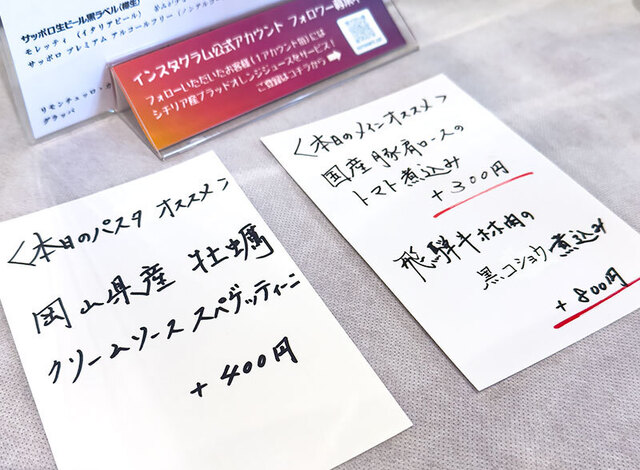 サッポロ生ビール黒ラベル(樽生)
モレッティ (イタリアビール)
サッポロ プレミアム アルコールフリー (ノンアルコール
リモンチェッロ・
グラッパ
インスタグラム公式アカウント フォロワー募集中
フォローいただいたお客様(1アカウント毎)には
シチリア産ブラッドオレンジジュースをサービス!
ご登録はコチラから→
<本日のパスタ オススメ>
岡山県産 牡蠣
クリームソース スパゲッティーニ
+400円
<本日のメインオススメ>
国産豚肩ロースの
トマト煮込み
+300円
飛騨牛林肉の
黒コショウ煮込み
+800円